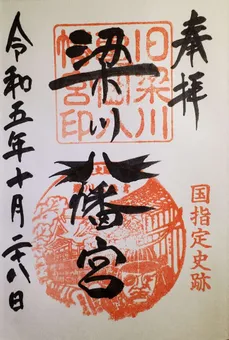 奉拝
国指定史跡
梁川八幡宮
旧梁川
八幡宮印
令和五年十月二十八日